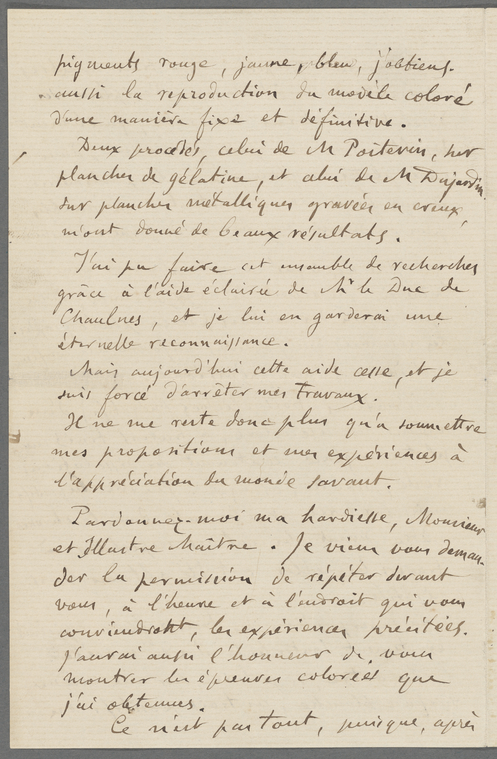 pigments rouge, jaune, bleu, j'obtiens
aussi la reproduction du modèle coloré
d'une manière fixe et définitive.
Deux procédés, celui de M Poitevin, sur
planches de gélatine, et celui de M Dujardin
sur planches métalliques gravées en creux,
m'ont donné de beaux résultats.
J'ai pu faire cet ensemble de recherches
grâce à l'aide éclairée de Mr le Duc de
Chaulnes, et je lui en garderai une
éternelle reconnaissance.
Mais aujourd'hui cette aide cesse, et je
suis forcé d'arrêter mes travaux.
Il ne me reste donc plus qu'à soumettre
mes propositions et mes expériences à
l'appréciation du monde savant.
Pardonnez-moi ma hardiesse, Monsieur
et Illustre Maître. Je viens vous deman-
der la permission de répéter devant
vous, à l'heure et à l'endroit qui vous
conviendront, les expériences précitées.
J'aurai aussi l'honneur de vous
montrer les épreuves colorées que
j'ai obtenues.
Ce n'est pas tout, puisque, après